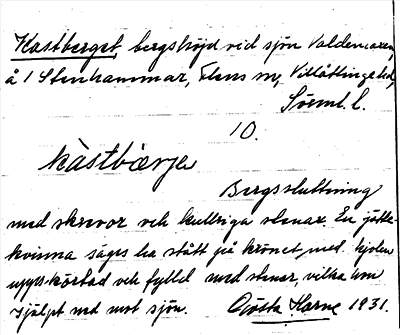 Kastberget, bergshöjd vid sjön Valdemaren,
å 1 Stenhammar, Flens sn, Villåttinge hd,
Söderml. l.
10.
kàstbærje
Bergssluttning
med skrevor och kullriga stenar. En jätte-
kvinna säges ha stått på krönet med kjolen
uppskörtad och fylld med stenar, vilka hon
stjälpt ned mot sjön. Gösta Karne 1931.